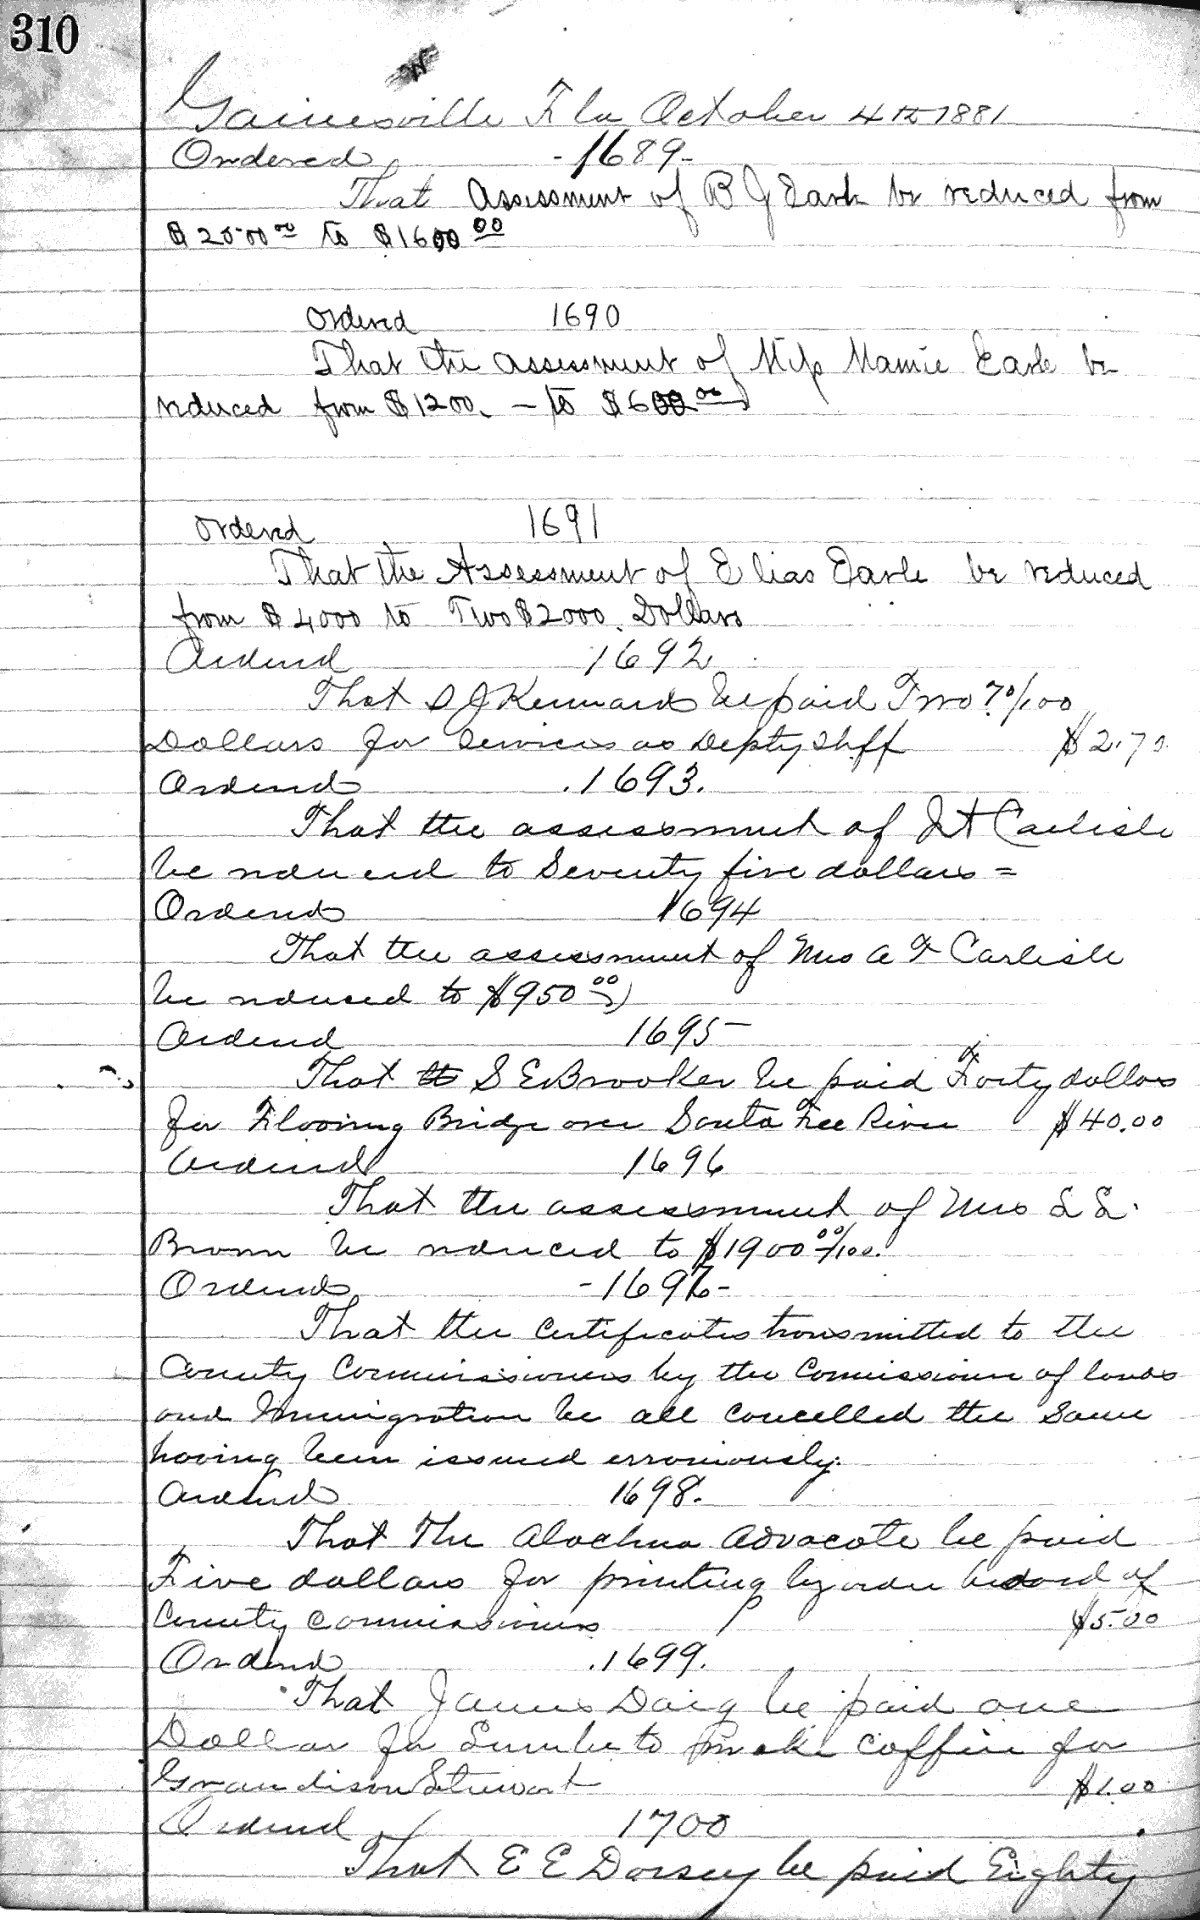 310
Gainesville Fla October 4th 1881
Ordered - 1689 -
That Assessment of B J Earle be reduced from
$2500 00 to $1600 00
Ordered 1690
That the assessment of Miss Mamie Earle be
reduced from $1200. - to $600 00
Ordered 1691
That the Assessment of Elias Earle be reduced
from $4000 to Two $2000. Dollars
Ordered 1692
That S J Kennard be paid Two 70/100
Dollars for services as Depty Shff $2.70
Ordered .1693.
That the assessment of Carlisle
be reduced to Seventy five dollars =
Ordered 1694
That the assessment of Mrs A F Carlisle
be reduced to $950 00
Ordered 1695 -
That S E Brooker be paid Forty dollars
for Flooring Bridge over Santa Fee River $40.00
Ordered 1696
That the assessment of Mrs L L.
Brown be reduced to $1900 00/100.
Ordered - 1697 -
That the certificates transmitted to the
County Commissioners by the Commissioner of lands
and Immigration be all cancelled the same
having been issued erroniously.
Ordered 1698.
That The Alachua Advocate be paid
Five dollars for printing by order board of
County Commissioners $5.00
Ordered .1699.
That James Doig be paid one
Dollar for Lumber to make coffin for
Grandison Stewart $1.00
Ordered 1700
That E E Dorsey be paid Eighty